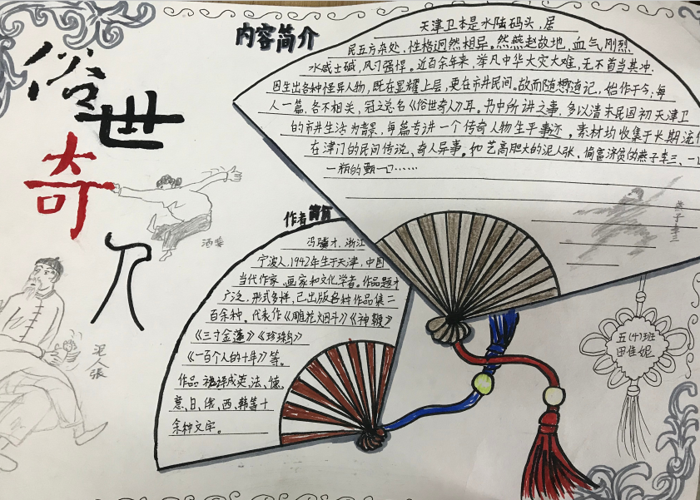 俗世奇人
内容简介
天津卫本是水陆码头,居
民五方杂处,性格迥然相异。然燕赵故地,血气刚烈
水咸土碱,风习强悍。近百余年来,举凡中华大灾大难,无不首当其冲,
因生出各种怪异人物,既在显耀上层,更在市井民间。故而随想随记,始作于今,每
人一篇,各不相关,冠之总名《俗世奇人》耳。书中所讲之事,多以清末民国初天津卫
的市井生活为背景,每篇专讲一个传奇人物生平事迹。素材均收集于长期流传
在津门的民间传说、奇人异事。如艺高胆大的泥人张,偷富济贫的燕子李三、一口
一瓶的
燕子李三
酒婆
作者简介
冯骥才,浙江
宁波人,1942年生于天津,中国
当代作家、画家和文化学者。作品题才
广泛,形式多样,已出版各种作品集二
百余种,代表作《雕花烟斗》《神鞭》
《三寸金莲》《珍珠鸟》
《一百个人的十年》等。
作品被译成英、法、德、
意、日、俄、西、韩等十
余种文字。
泥人张
五(十)班
田佳妮